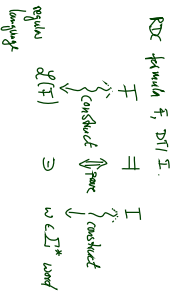 RDC formula F, DTI I.
F ⫤ I
construct prove construct
ℒ(F) ∋ w ∈ Σ* word
regular
language